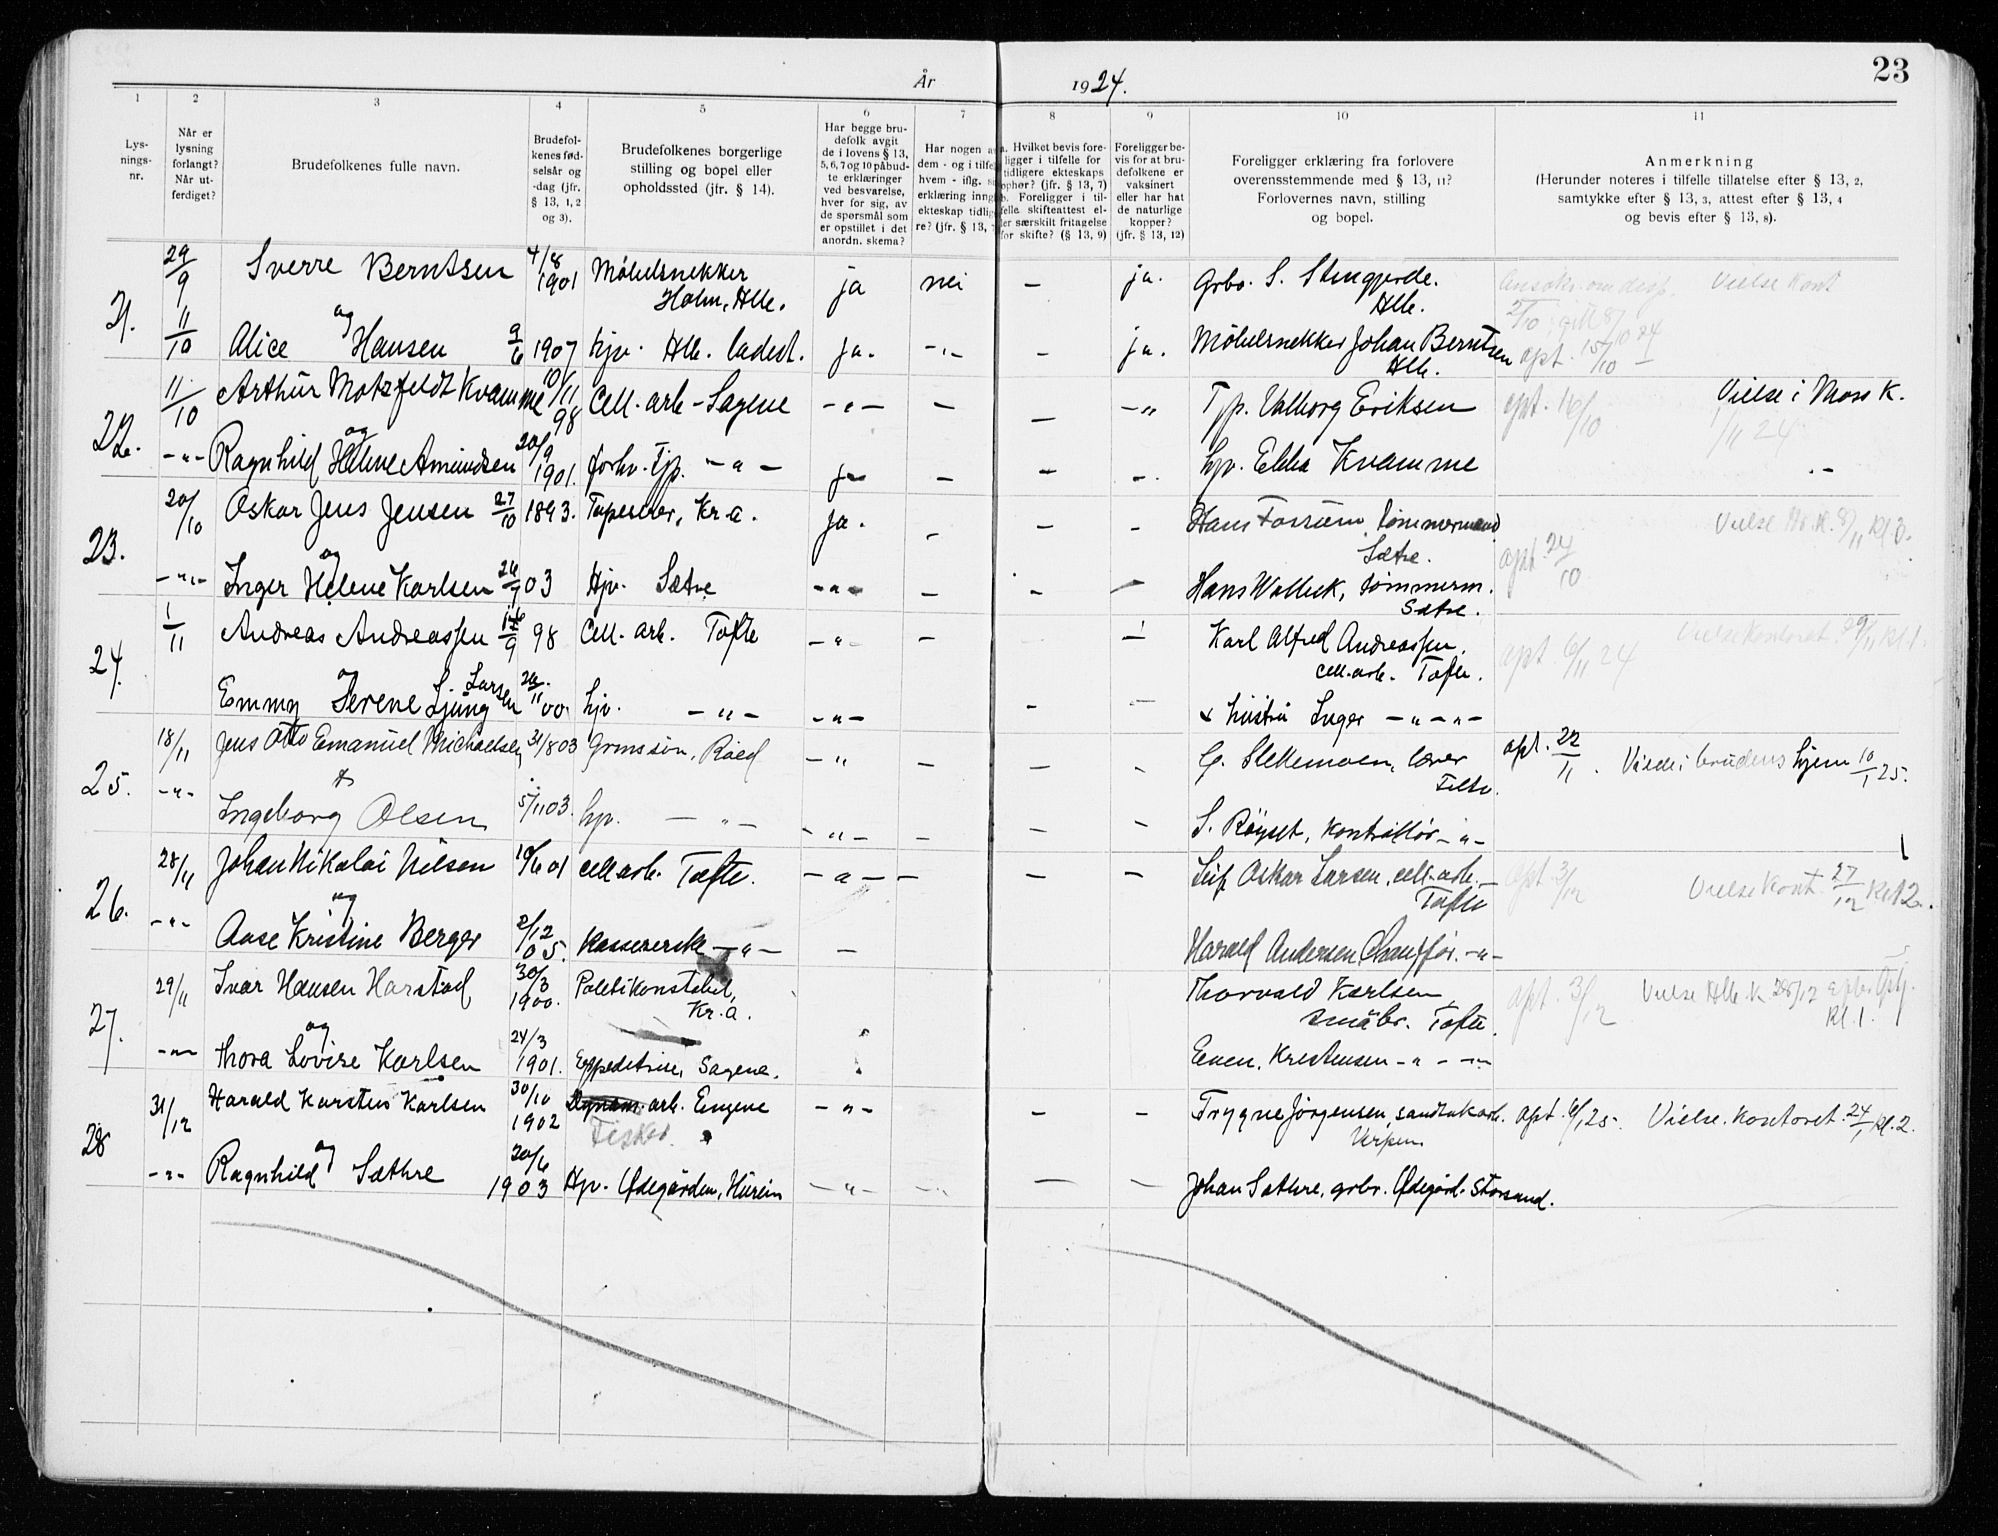 23
År 1924.
1 2 3 4 5 6 7 8 9 10 11
Lysnings-nr.
Når er lysning forlangt? Når utferdiget?
Brudefolkenes fulle navn.
Brudefolkenes fødselsår og -dag (jfr. § 13, 1, 2 og 3).
Brudefolkenes borgerlige stilling og bopel eller opholdssted (jfr. § 14).
Har begge brudefolk avgit de i lovens § 13, 5, 6, 7 og 10 påbudte erklæringer ved besvarelse, hver for sig, av de spørsmål som er opstillet i det anordn. skema?
Har nogen a dem - og i tilfel hvem - iflg. s erklæring inng ekteskap tidlig re? (jfr. § 13, 7
a. Hvilket bevis foreligger i tilfelle for tidligere ekteskaps ophør? (jfr. § 13, 7) b. Foreligger i tilfelle skifteattest eller særskilt fritagelse for skifte? (§ 13, 9)
Foreligger bevis for at brudefolkene er vaksinert eller har hat de naturlige kopper? (jfr. § 13, 12)
Foreligger erklæring fra forlovere overensstemmende med § 13, 11? Forlovernes navn, stilling og bopel.
Anmerkning (Herunder noteres i tilfelle tillatelse efter § 13, 2, samtykke efter § 13, 3, attest efter § 13, 4 og bevis efter § 13, 8).
21. 29/9 Sverre Berntsen 4/8 1901 Møbelsnekker Holm, Hbl. ja nei - ja. Grbr. S. Stengjerde. Hbl. Ansøkn. om disp. 2/10 Vielse Kont
og
11/10 Alice Hansen 9/6 1907 hjv. Hbl. ladest. ja. -"- - ja. Møbelsnekker Johan Berntsen Hbl. opt. 15/10
22. 11/10 Arthur Motzfeldt Kvamme 10/11 98 Cell. arb - Sagene -"- - - -" Tjp. Valborg Eriksen opt. 16/10 Vielse i Moss K. 1/11 24
og
-"- Ragnhild Helene Amundsen 20/9 1901. forhv. Tjp. -"- ja - - - hjv. Ebba Kvamme
23. 20/10 Oskar Jens Jensen 27/10 1893. Tapetserer, Kr.a. ja. - - - Hans Forsum, tømmermand Sætre. opt. 24/10 Vielse Hv. K. 8/11 kl 3.
og
-"- Inger Helene Karlsen 26/7 03 Hjv. Sætre -"- - - - Hans Walbek, tømmerm. Sætre.
24. 1/11 Andreas Andreassen 16/9 98 Cell. arb. Tofte -"- - - Karl Alfred Andreassen, cell.arb. Tofte. opt. 6/11 24 Vielse Kontoret 29/11 kl 1.
og
Emmy Serene Ljung Larsen 26/11 00. hjv. -"- -"- - - + hustru Inger -"-"-
25. 18/11 Jens Otto Emanuel Michaelsen 31/8 03 Grmssøn, Røed -" - - - G. Slettemoen, lærer Filtv. opt. 22/11. Vielse i brudens hjem 10/1 25.
-"- Ingeborg Olsen 5/11 03. hjv. -"- -"- - - - S. Røyset, kontrollør -"-
26. 28/11 Johan Nikolai Nilsen 10/6 01 cell arb. Tofte. -"- - - - Leif Oskar Larsen, cell-arb. - Tofte opt. 3/12 Vielse Kont. 27/12 kl 12.
og
-"- Aase Kristine Berger 2/12 05. Kassererske -"- - Harald Andersen, Chauffør. -"-
27. 29/11 Ivar Hansen Harstad 30/3 1900. Politikonstabel, Kr.a. Thorvald Karlsen, småbr. Tofte. opt. 3/12 Vielse Hbl. K 28/12 kl. 1.
og
-"- Thora Lovise Karlsen 24/3 1901. Expeditrise, Sagene. Even. Kristensen -"- -"-
28 31/12 Harald Karsten Karlsen 30/10 1902 Dynam. arb. Engene -"- - - Trygve Jørgensen, sandtakarb. Verpen opt. 6/1 25. Vielse. Kontoret. 24/1 kl. 2.
Fisker.
og
-"- Ragnhild Sæthre 20/6 1903 Hjv. Ødegården, Hurum -"- -"- - - Johan Sæthre, grbr. Ødegård. Storsand.